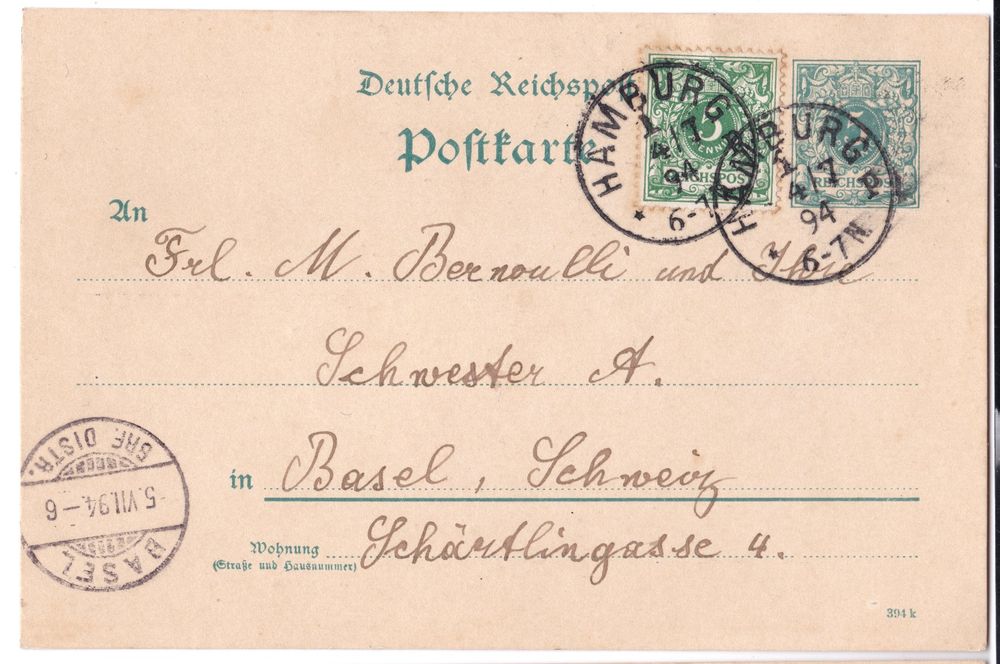 Deutsche Reichspost
Postkarte
HAMBURG 1
4/7
94
6-7N
*
5
PFENNIG
REICHSPOST
HAMBURG 1
4/7
94
6-7N
*
REICHSPOST
An
Frl. M. Bernoulli und Ihre
Schwester A.
in Basel, Schweiz
Wohnung Schärtlingasse 4.
(Straße und Hausnummer)
BASEL
5.VII.94.–6
BRF. DISTR.
394 k